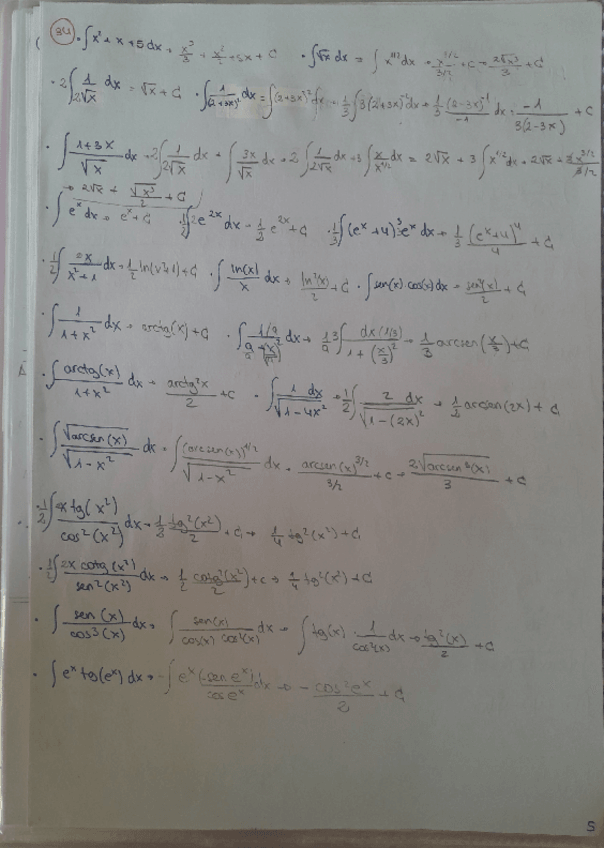 34 · ∫ x² + x + 5 dx = x³/3 + x²/2 + 5x + C · ∫ √x dx = ∫ x^(1/2) dx = x^(3/2)/(3/2) + C = 2√x³/3 + C
· 2∫ 1/(2√x) dx = √x + C · ∫ 1/(2+3x)² dx = ∫ (2+3x)^-2 dx = 1/3 ∫ 3(2+3x)^-2 dx = 1/3 (2-3x)^-1/-1 dx = -1/(3(2-3x)) + C
· ∫ (1+3x)/√x dx = 2∫ 1/(2√x) dx + ∫ 3x/√x dx = 2∫ 1/(2√x) dx + 3∫ x/x^(1/2) dx = 2√x + 3∫ x^(1/2) dx = 2√x + 3x^(3/2)/(3/2)
→ 2√x + √x³/2 + C
· ∫ e^x dx = e^x + C 1/2 ∫ 2e^(2x) dx = 1/2 e^(2x) + C · 1/3 ∫ (e^x+4)³ e^x dx = 1/3 (e^x+4)^4/4 + C
· 1/2 ∫ 2x/(x²+1) dx = 1/2 ln(x²+1) + C · ∫ ln(x)/x dx = ln²(x)/2 + C · ∫ sen(x) cos(x) dx = sen²(x)/2 + C
· ∫ 1/(1+x²) dx = arctg(x) + C · ∫ (1/9)/(9/9+(x²/9)) dx = 1/9 3∫ dx(1/3)/(1+(x/3)²) = 1/3 arcsen(x/3) + C
· ∫ arctg(x)/(1+x²) dx = arctg²x/2 + C · ∫ 1 dx/√(1-4x²) = 1/2 ∫ 2 dx/√(1-(2x)²) = 1/2 arcsen(2x) + C
· ∫ √arcsen(x)/√(1-x²) dx = ∫ (arcsen(x))^(1/2)/√(1-x²) dx = arcsen(x)^(3/2)/(3/2) + C = 2√arcsen³(x)/3 + C
· 1/2 ∫ 2x tg(x²)/cos²(x²) dx = 1/2 tg²(x²)/2 + C → 1/4 tg²(x²) + C
· 1/2 ∫ 2x cotg(x²)/sen²(x²) dx = 1/2 cotg²(x²)/2 + C → 1/4 tg²(x²) + C
· ∫ sen(x)/cos³(x) dx = ∫ sen(x)/(cos(x) cos²(x)) dx = ∫ tg(x) · 1/cos²(x) dx → tg²(x)/2 + C
· ∫ e^x tg(e^x) dx = -∫ e^x(-sen e^x)/cos e^x dx = -cos²e^x/2 + C
5